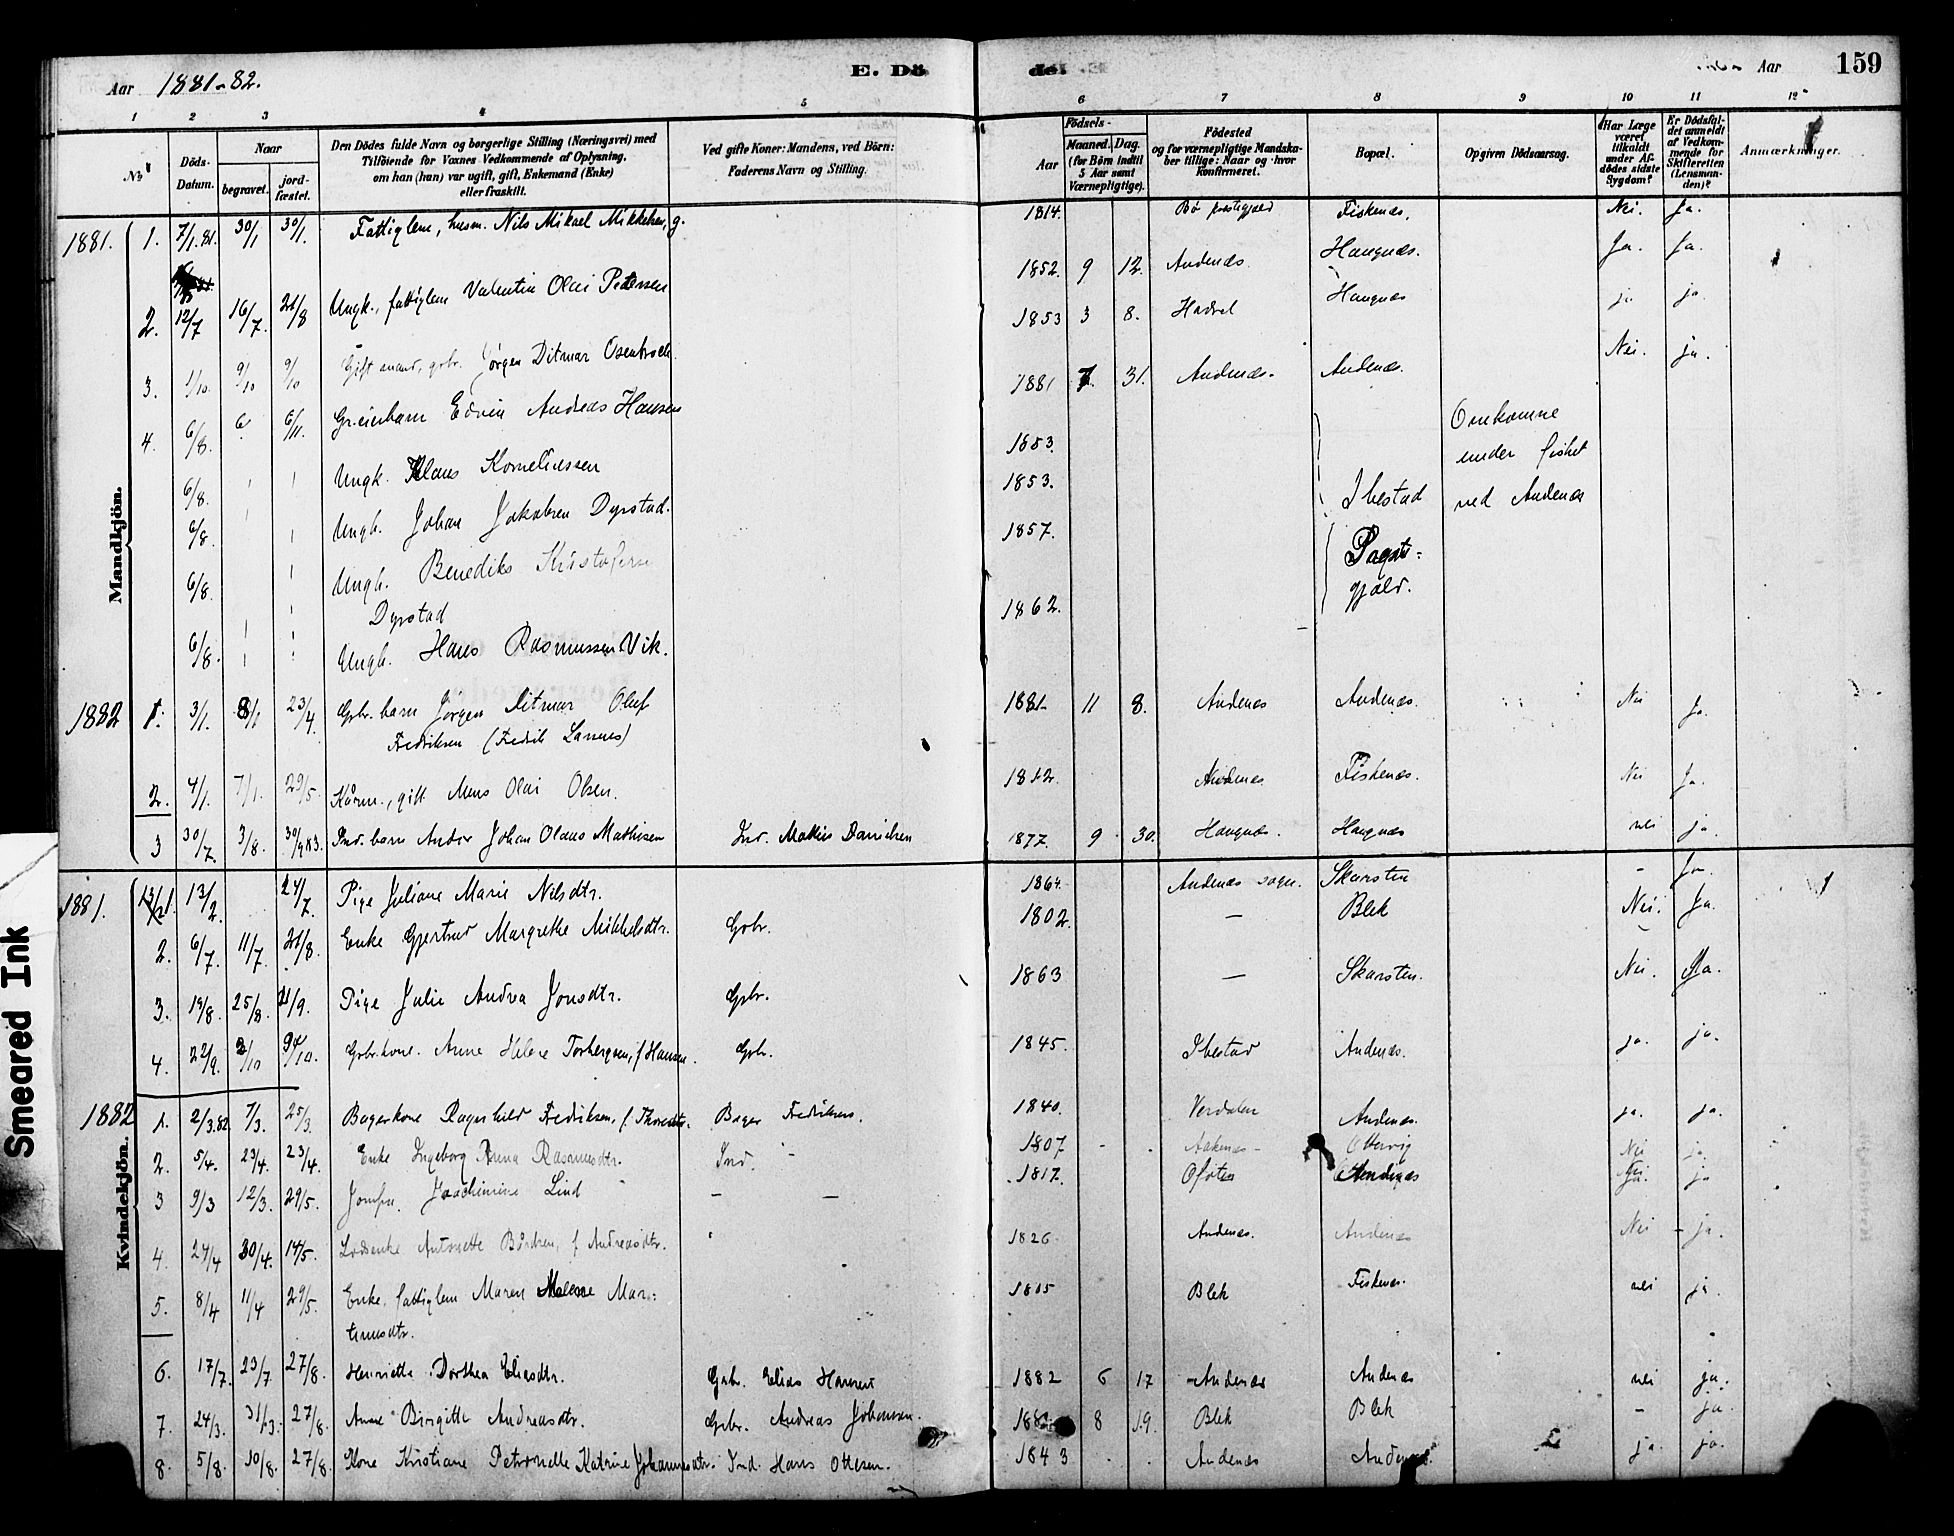 Aar 1881-82.
E. Dö
de.
Aar
159
1 2 3 4 5 6 7 8 9 10 11 12
No
Döds-
Datum.
Naar
begravet.
jord-
fæstet.
Den Dödes fulde Navn og borgerlige Stilling (Næringsvei) med
Tilföiende for Voxnes Vedkommende af Oplysning,
om han (hun) var ugift, gift, Enkemand (Enke)
eller fraskilt.
Ved gifte Koner: Mandens, ved Börn:
Faderens Navn og Stilling.
Födsels-
Aar
Maaned. Dag.
(for Börn indtil
5 Aar samt
Værnepligtige).
Födested
og for værnepligtige Mandska-
ber tillige: Naar og hvor
konfirmeret.
Bopæl.
Opgiven Dödsaarsag.
Har Læge
været
tilkaldt
under Af-
dödes sidste
Sygdom?
Er Dödsfal-
det anmeldt
af Vedkom-
mende for
Skifteretten
(Lensman-
den)?
Anmærkninger.
Mandkjön.
1881. 1. 7/1.81. 30/1 30/1 Fattiglem, husm. Nils Mikael Mikkelsen, g. 1814. Bö prestegjeld Fiskenæs. Nei. Ja.
2. 12/7 16/7. 21/8 Ungk., fattiglem Valentin Olai Pedersen 1852. 9 12. Andenæs Haugnæs. Ja. Ja.
3. 1/10. 9/10 9/10 Gift mand, gbr. Jörgen Ditmar Osenbroch 1853 3 8. Hadsel Haugnæs ja ja.
4. 6/8. 6/11. Gr.eierbarn Edvin Andreas Hansen 1881 7. 31. Andenæs. Andenæs. Nei. ja.
6/8. Ungk. Klaus Korneliussen 1853. Omkomne
6/8. Ungk. Johan Jakobsen Dyrstad. 1853. Ibestad under fisket
6/8. Ungk. Benedikt Kristofersen 1857. Prest- ved Andenæs
Dyrstad gjæld.
6/8. Ungk. Hans Rasmussen Vik. 1862.
1882 1. 3/1. 8/1 23/4. Gbr. barn Jörgen Ditmar Oluf 1881 11 8. Andenæs Andenæs. Nei Ja.
Fredriksen (Fredrik Larsens)
2. 4/1. 7/1. 29/5. Kårm., gift Mons Olai Olsen. 1812 Andenæs Fiskenæs. Nei Ja.
3 30/7. 3/8. 30/9 83. Ind. barn Andor Johan Olaus Mathisen Ind. Mathis Danielsen 1877. 9 30. Haugnæs. Haugnæs nei ja.
Kvindekjön.
1881. 1. 13/2. 24/7. Pige Juliane Marie Nilsdtr. 1864. Andenæs sogn. Skarsten - Ja.
2. 6/7. 11/7. 21/8. Enke Gjertrud Margrethe Mikkelsdtr. Gbr. 1802. — Blek Nei. Ja.
3. 19/8. 25/8. 11/9. Pige Julie Andrea Jonsdtr. Gbr. 1863 — Skarsten. Nei. Ja.
4. 22/9. 2/10 9/10. Gbr.kone. Anne Helene Torbergsen, f. Hansen. Gbr. 1845. Ibestad Andenæs. ja. ja.
1882 1. 2/3.82 7/3. 25/3. Bagerkone Ragnhild Fredriksen, f. Thoresdtr. Bager Fredriksen. 1840. Verdalen Andenæs. ja. ja.
2. 5/4. 23/4. 23/4. Enke Ingeborg Anna Rasmusdtr. Ind. - 1807 Nei ja.
3 9/3 12/3. 29/5. Jomfru. Joachimine Lind — — 1817. Ofoten Andenæs ja
4. 24/4 30/4. 14/5. Antonette f. Andreasdtr. 1826 Andenæs. Andenæs Nei - ja.
5. 8/4 11/4 29/5. Enke, fattiglem Maren Malene Mar- 1805 Blek Fiskenæs. nei ja.
tinusdtr.
6. 17/7. 23/7 27/8. Henriette Dorthea Eliasdtr. Gbr. Elias Hansen 1882 6 17 Andenæs Andenæs nei ja.
7. 24/3. 31/3. 27/8. Anne Birgitte Andreasdtr. Gbr. Andreas Johansen. 188 8 19. Blek Blek - ja.
8. 5/8. 10/8. 27/8. Kone Kristiane Petronelle Katrine Johannesdtr. Ind. Hans Ottesen. 1843 Andenæs Andenæs ja. ja.
Smeared Ink